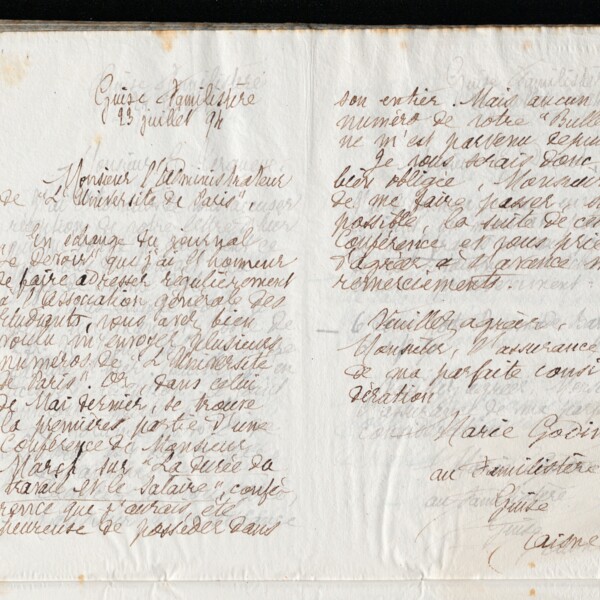 Guise Familistère
23 juillet 94
Monsieur l'Administrateur
de "L'Université de Paris".
En échange du journal
Le Devoir que j'ai l'honneur
de faire adresser régulièrement
à l'association générale des
étudiants, vous avez bien
voulu m'envoyer plusieurs
numéros de "L'Université
de Paris". Or, dans celui
de Mai dernier, se trouve
la première partie d'une
Conférence de Monsieur
sur "La durée du
travail et le salaire", confé-
rence que j'aurais été
heureuse de posséder dans
son entier. Mais aucun
numéro de votre "Bulle
ne m'est parvenu depuis
Je vous serais donc
bien obligée, Monsieur
de me faire passer si
possible, la suite de cette
Conférence et vous prie
d'agréer à l'avance m
remerciements.
Veuillez agréer
Monsieur, l'assurance
de ma parfaite consi
dération
Marie Godin
au Familistère
Guise
Aisne